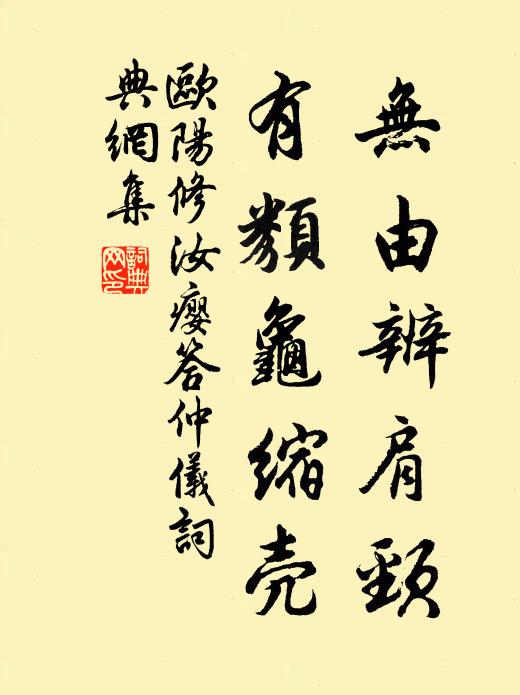 無由辨肩頸
有類龜縮壳
歐陽修汝癭答仲儀詞
典網集
詞典網印